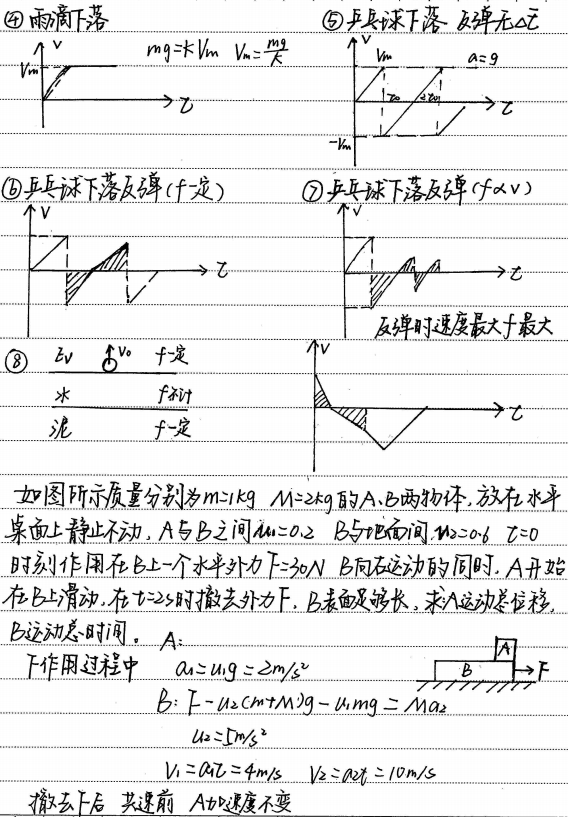 ④ 雨滴下落
V
Vm
t
mg=kVm Vm=mg/k
⑤ 乒乓球下落 反弹无Δt
V
Vm
a=g
t0
2t0
t
-Vm
⑥ 乒乓球下落反弹(f一定)
V
t
⑦ 乒乓球下落反弹(f∝v)
V
t
反弹时速度最大f最大
⑧
V0 f一定
水 f不计
泥 f一定
V
t
如图所示质量分别为m=1kg M=2kg的A、B两物体,放在水平
桌面上静止不动,A与B之间u1=0.2 B与地面间u2=0.6 t=0
时刻作用在B上一个水平外力F=30N B向右运动的同时,A开始
在B上滑动,在t=2s时撤去外力F,B表面足够长,求A运动总位移,
B运动总时间。 A:
F作用过程中 a1=u1g=2m/s²
A
B
F
B: F-u2(m+M)g-u1mg=Ma2
u2=5m/s²
V1=a1t=4m/s V2=a2t=10m/s
撤去F后 共速前 A加速度不变